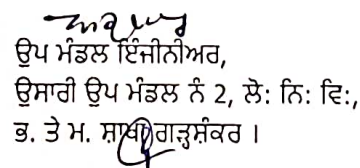 ਉਪ ਮੰਡਲ ਇੰਜੀਨੀਅਰ,
ਉਸਾਰੀ ਉਪ ਮੰਡਲ ਨੰ 2, ਲੋ: ਨਿ: ਵਿ:,
ਭ. ਤੇ ਮ. ਸ਼ਾਖਾ ਗੜ੍ਹਸ਼ੰਕਰ ।